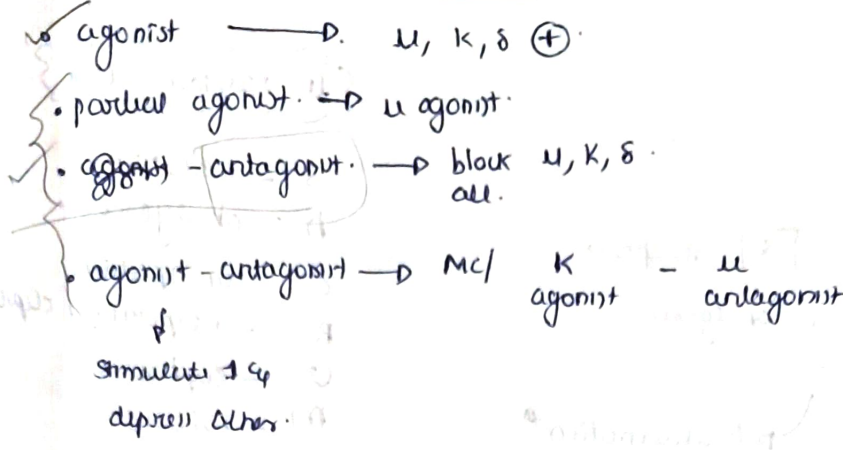 agonist → μ, κ, δ ⊕.
• partial agonist. → μ agonist.
• - antagonist. → block all. μ, κ, δ.
• agonist - antagonist → MC/ κ agonist - μ antagonist
↓
stimulate 1 &
depress other.